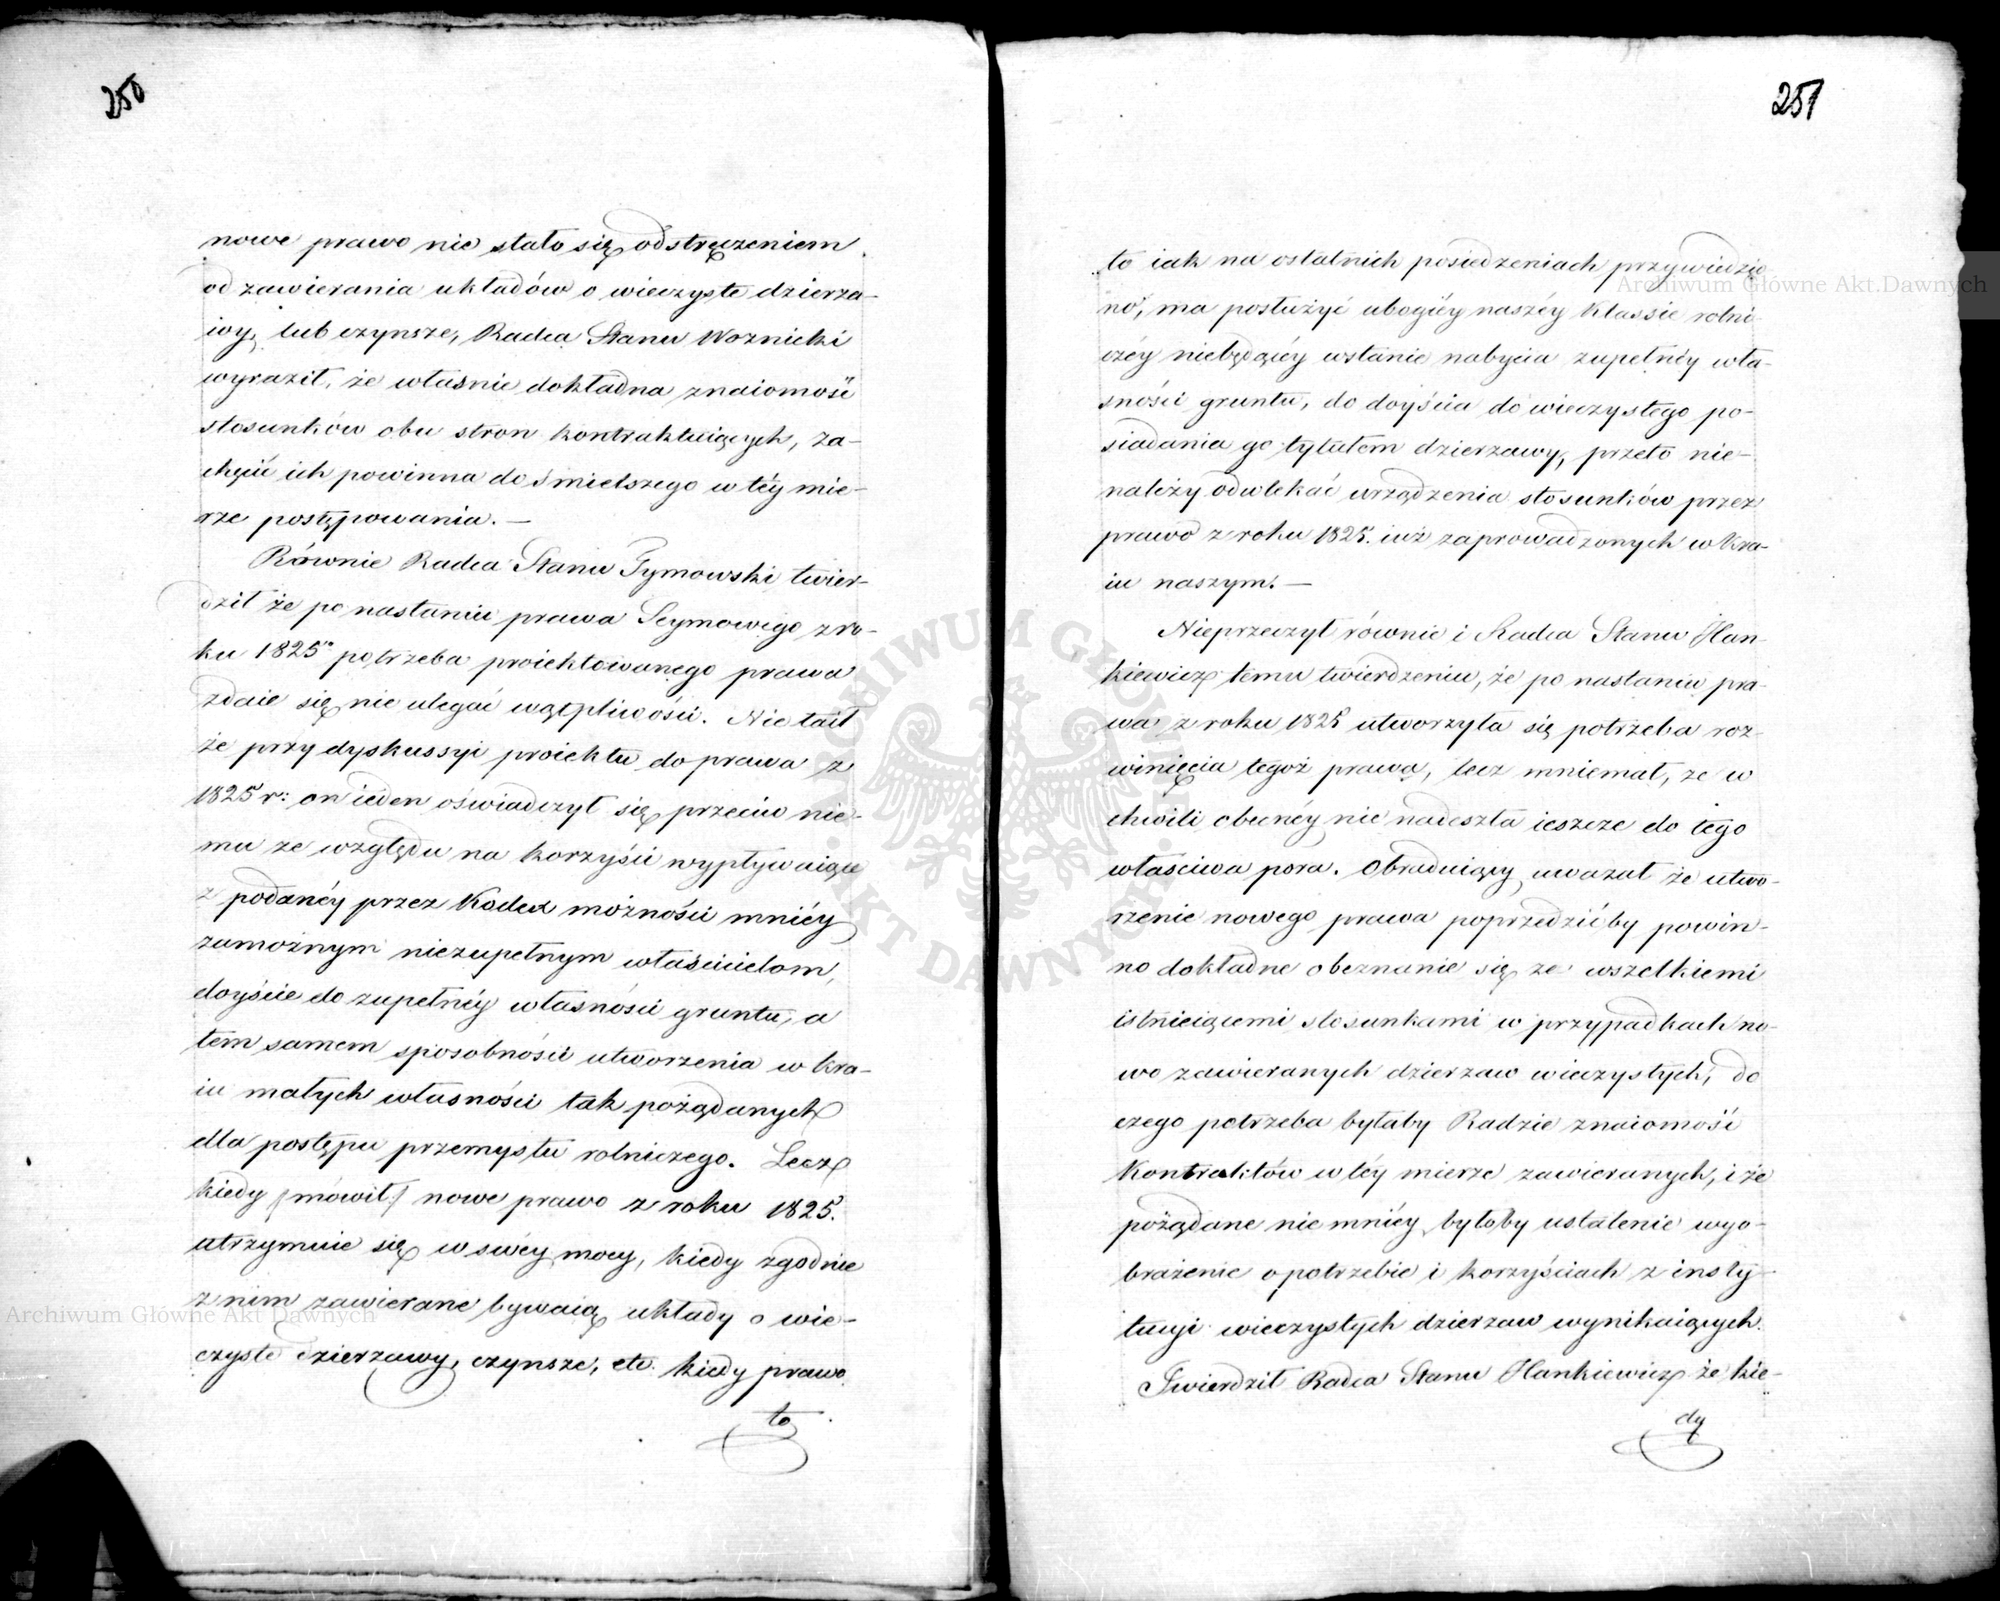 250
nowe prawo nie stało się odstręczeniem
od zawierania układów o wieczyste dzierza-
wy, lub czynsze, Radca Stanu Woznicki
wyraził, że właśnie dokładna znaiomość
stosunków obu stron kontraktuiących, za-
chęcić ich powinna do śmielszego w téy mie-
rze postępowania. —
Równie Radca Stanu Tymowski twier-
dził że po nastaniu prawa Seymowego z ro-
ku 1825o potrzeba proiektowanego prawa
zdaie się nie ulegać wątpliwości. Nie taił
że przy dyskussyi proiektu do prawa z
1825 r: on ieden oświadczył się przeciw nie-
mu ze względu na korzyści wypływaiące
z podanéy przez Kodex możności mniéy
zamożnym niezupełnym właścicielom,
doyście do zupełnéy własności gruntu, a
tem samem sposobności utworzenia w kra-
iu małych własności tak pożądanych
dla postępu przemysłu rolniczego. Lecz
kiedy /mówił/ nowe prawo z roku 1825.
utrzymuie się w swéy mocy, kiedy zgodnie
z nim zawierane bywaią układy o wie-
czyste dzierzawy, czynsze, etc. kiedy prawo
to
251
to iak na ostatnich posiedzeniach przywiedzio
no, ma posłużyć ubogiéy naszéy Klassie rolni
czéy niebędącéy wstanie nabycia zupełnéy wła-
sności gruntu, do doyścia do wieczystego po-
siadania go tytułem dzierzawy, przeto nie-
należy odwlekać urządzenia stosunków przez
prawo z roku 1825. iuż zaprowadzonych w kra-
iu naszym. —
Nieprzeczył równie i Radca Stanu Han-
kiewicz temu twierdzeniu, że po nastaniu pra-
wa z roku 1825 utworzyła się potrzeba roz-
winięcia tegoż prawa, lecz mniemał, że w
chwili obecnéy nie nadeszła ieszcze do tego
właściwa pora. Obraduiący uważał że utwo-
rzenie nowego prawa poprzedzić by powin-
no dokładne obeznanie się ze wszelkiemi
istnieiącemi stosunkami w przypadkach no-
wo zawieranych dzierzaw wieczystych, do
czego potrzeba byłaby Radzie znaiomość
Kontraktów w téy mierze zawieranych, i że
pożądane nie mniéy byłoby ustalenie wyo-
brażenie o potrzebie i korzyściach z insty-
tucyi wieczystych dzierzaw wynikaiących.
Twierdził Radca Stanu Hankiewicz że kie-
dy
Archiwum Główne Akt Dawnych
Archiwum Główne Akt Dawnych
ARCHIWUM GŁÓWNE AKT DAWNYCH